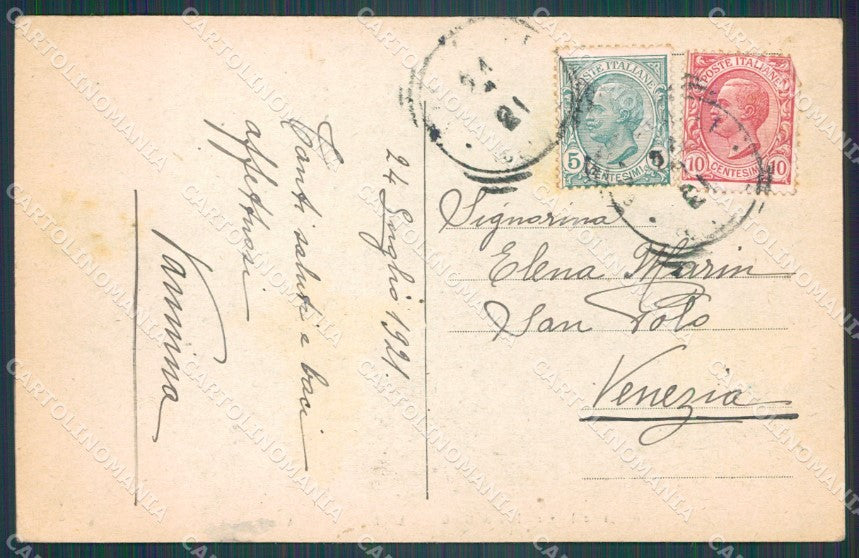 24 Luglio 1921.
Tanti saluti e baci
affettuosi
Vannina
POSTE ITALIANE
5
CENTESIMI
POSTE ITALIANE
10 10
CENTESIMI
24
21
Signorina
Elena Marin
San Polo
Venezia
CARTOLINOMANIA